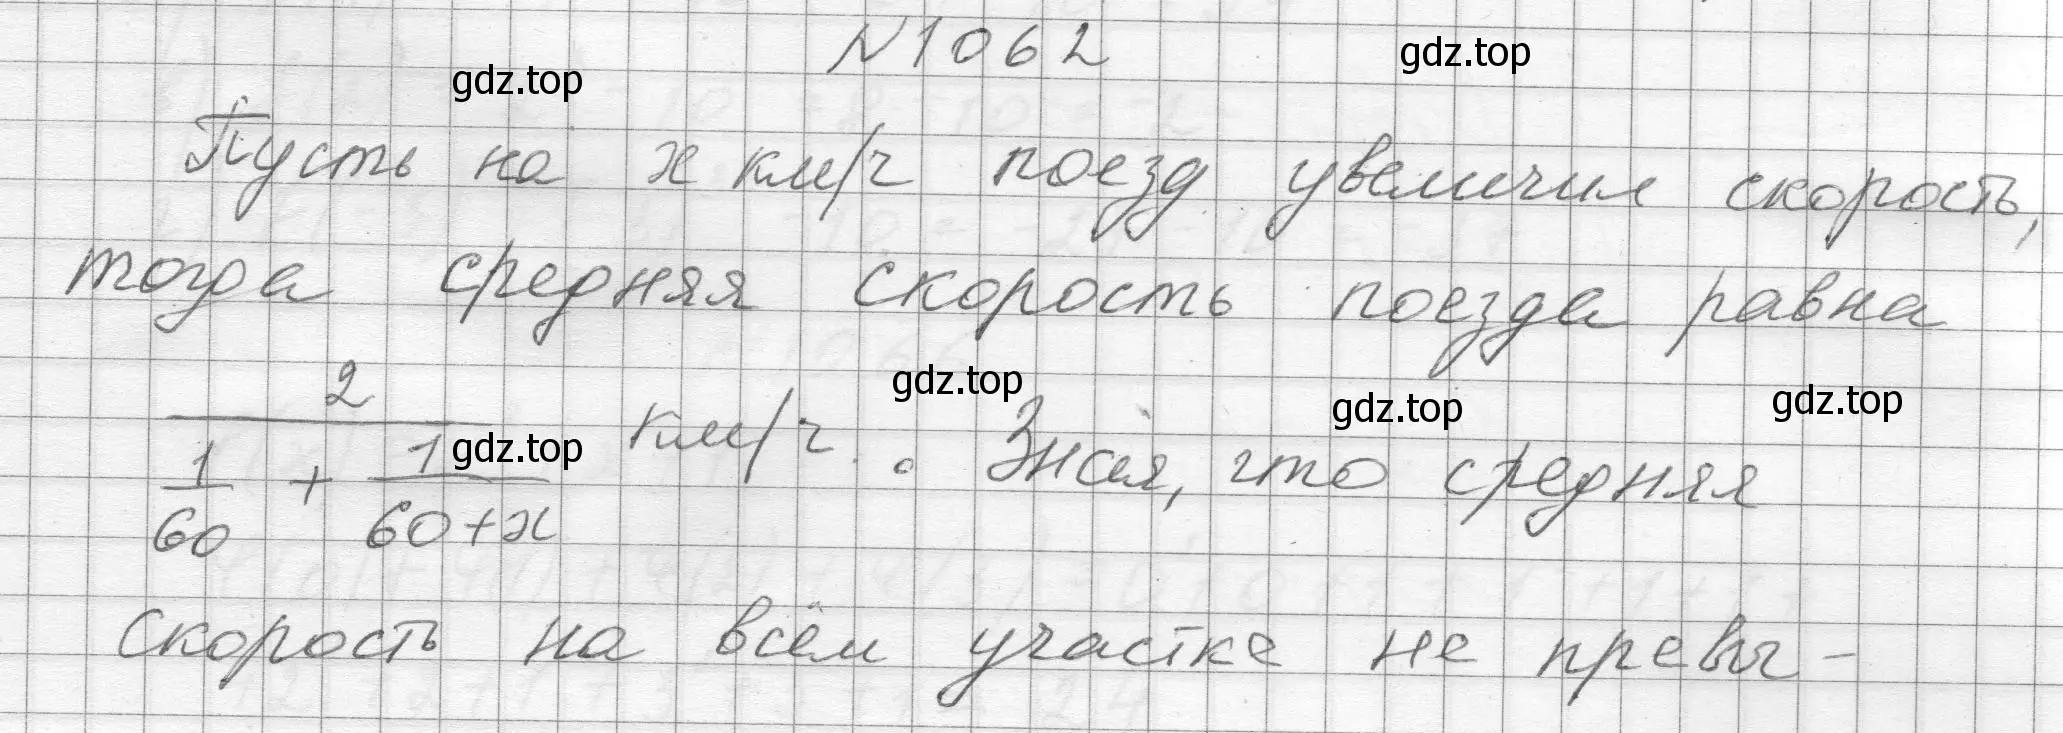 N 1062
gdz.top
gdz.top
Пусть на x км/ч поезд увеличил скорость,
тогда средняя скорость поезда равна
2 / (1/60 + 1/(60+x)) км/ч. Зная, что средняя
gdz.top
gdz.top
gdz.top
gdz.top
скорость на всём участке не превы-